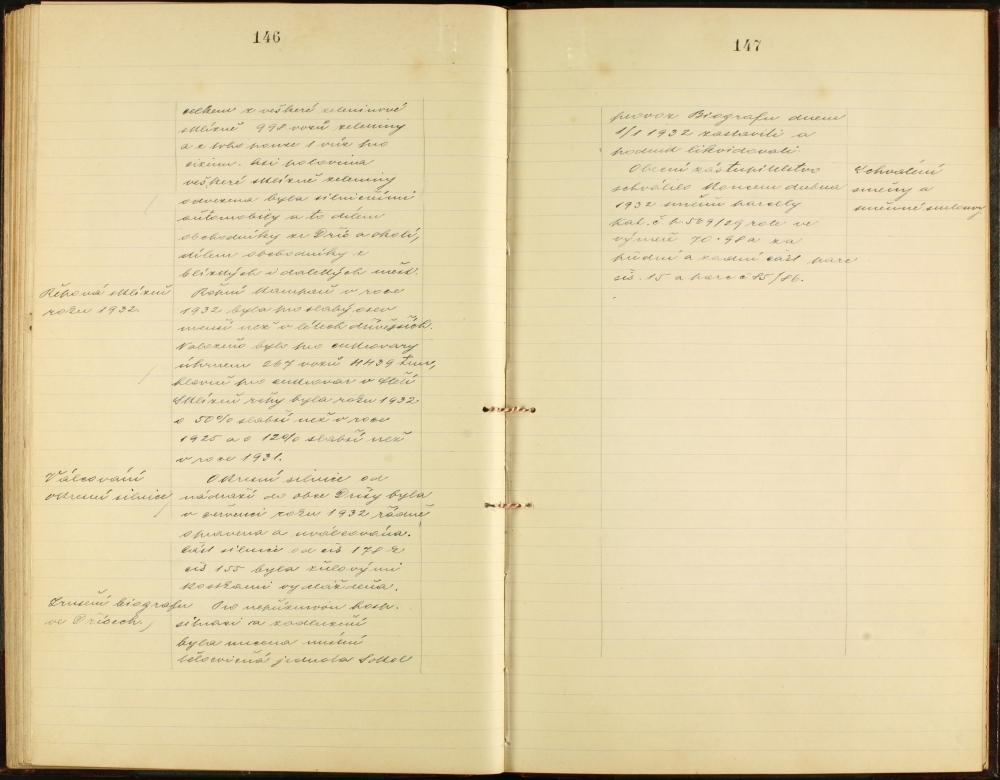 146
celkem z veškeré zeleninové
sklizně 998 vozů zeleniny
a z toho pouze 1 vůz pro
cizinu. Asi polovina
veškeré sklizně zeleniny
odvezena byla silničními
automobily a to dílem
obchodníky ze Dřís a okolí,
dílem obchodníky z
blízkých i dalekých měst.
Řepová sklizeň
roku 1932.
Řepní kampaň v roce
1932 byla pro slabý osev
menší než v létech dřívějších.
Naloženo bylo pro cukrovary
úhrnem 267 vozů 4439 tun,
hlavně pro cukrovar v
Sklizeň řepy byla roku 1932
o 50% slabší než v roce
1925 a o 12% slabší než
v roce 1931.
Válcování
okresní silnice
Okresní silnice od
nádraží do obce Dřísy byla
v červenci roku 1932 řádně
opravena a uválcována.
Část silnice od čís 178 k
čís 155 byla žulovými
kostkami vydlážděna.
Zrušení biografu
ve Dřísech.
Pro nepříznivou hosp.
situaci a zadlužení
byla nucena místní
tělocvičná jednota Sokol
147
provoz Biografu dnem
1/1 1932 zastaviti a
podnik likvidovati
Obecní zastupitelstvo
schválilo koncem dubna
1932 směnu parcely
kat. č. p. 569/29 role ve
výměře 70.98 a za
přední a zadní část parc
čís. 15 a parc č 85/86.
Schválení
směny a
směnné smlouvy